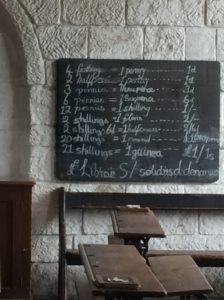 4 farthings = 1 penny 1d
2 halfpennies = 1 penny 1d
3 pennies = Threepence 3d
6 pennies = 1 Sixpence 6d
12 pennies = 1 shilling 1/-
2 shillings = 1 florin 2/-
2 shillings 6d = 1 halfcrown 2/6
20 shillings = 1 pound
21 shillings = 1 guinea £1/1s
£ Librae S/ solidus d denarius